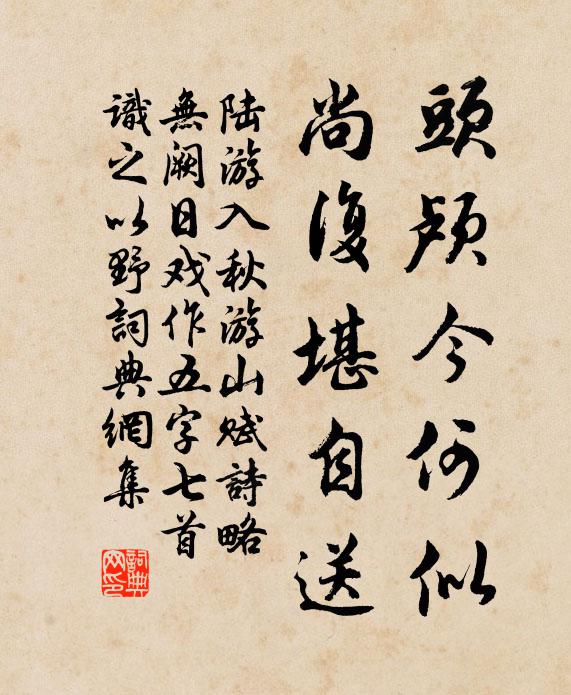 頭颅今何似
尚復堪自送
陆游入秋游山赋詩略
無阙日戏作五字七首
識之以野詞典網集
詞典网印